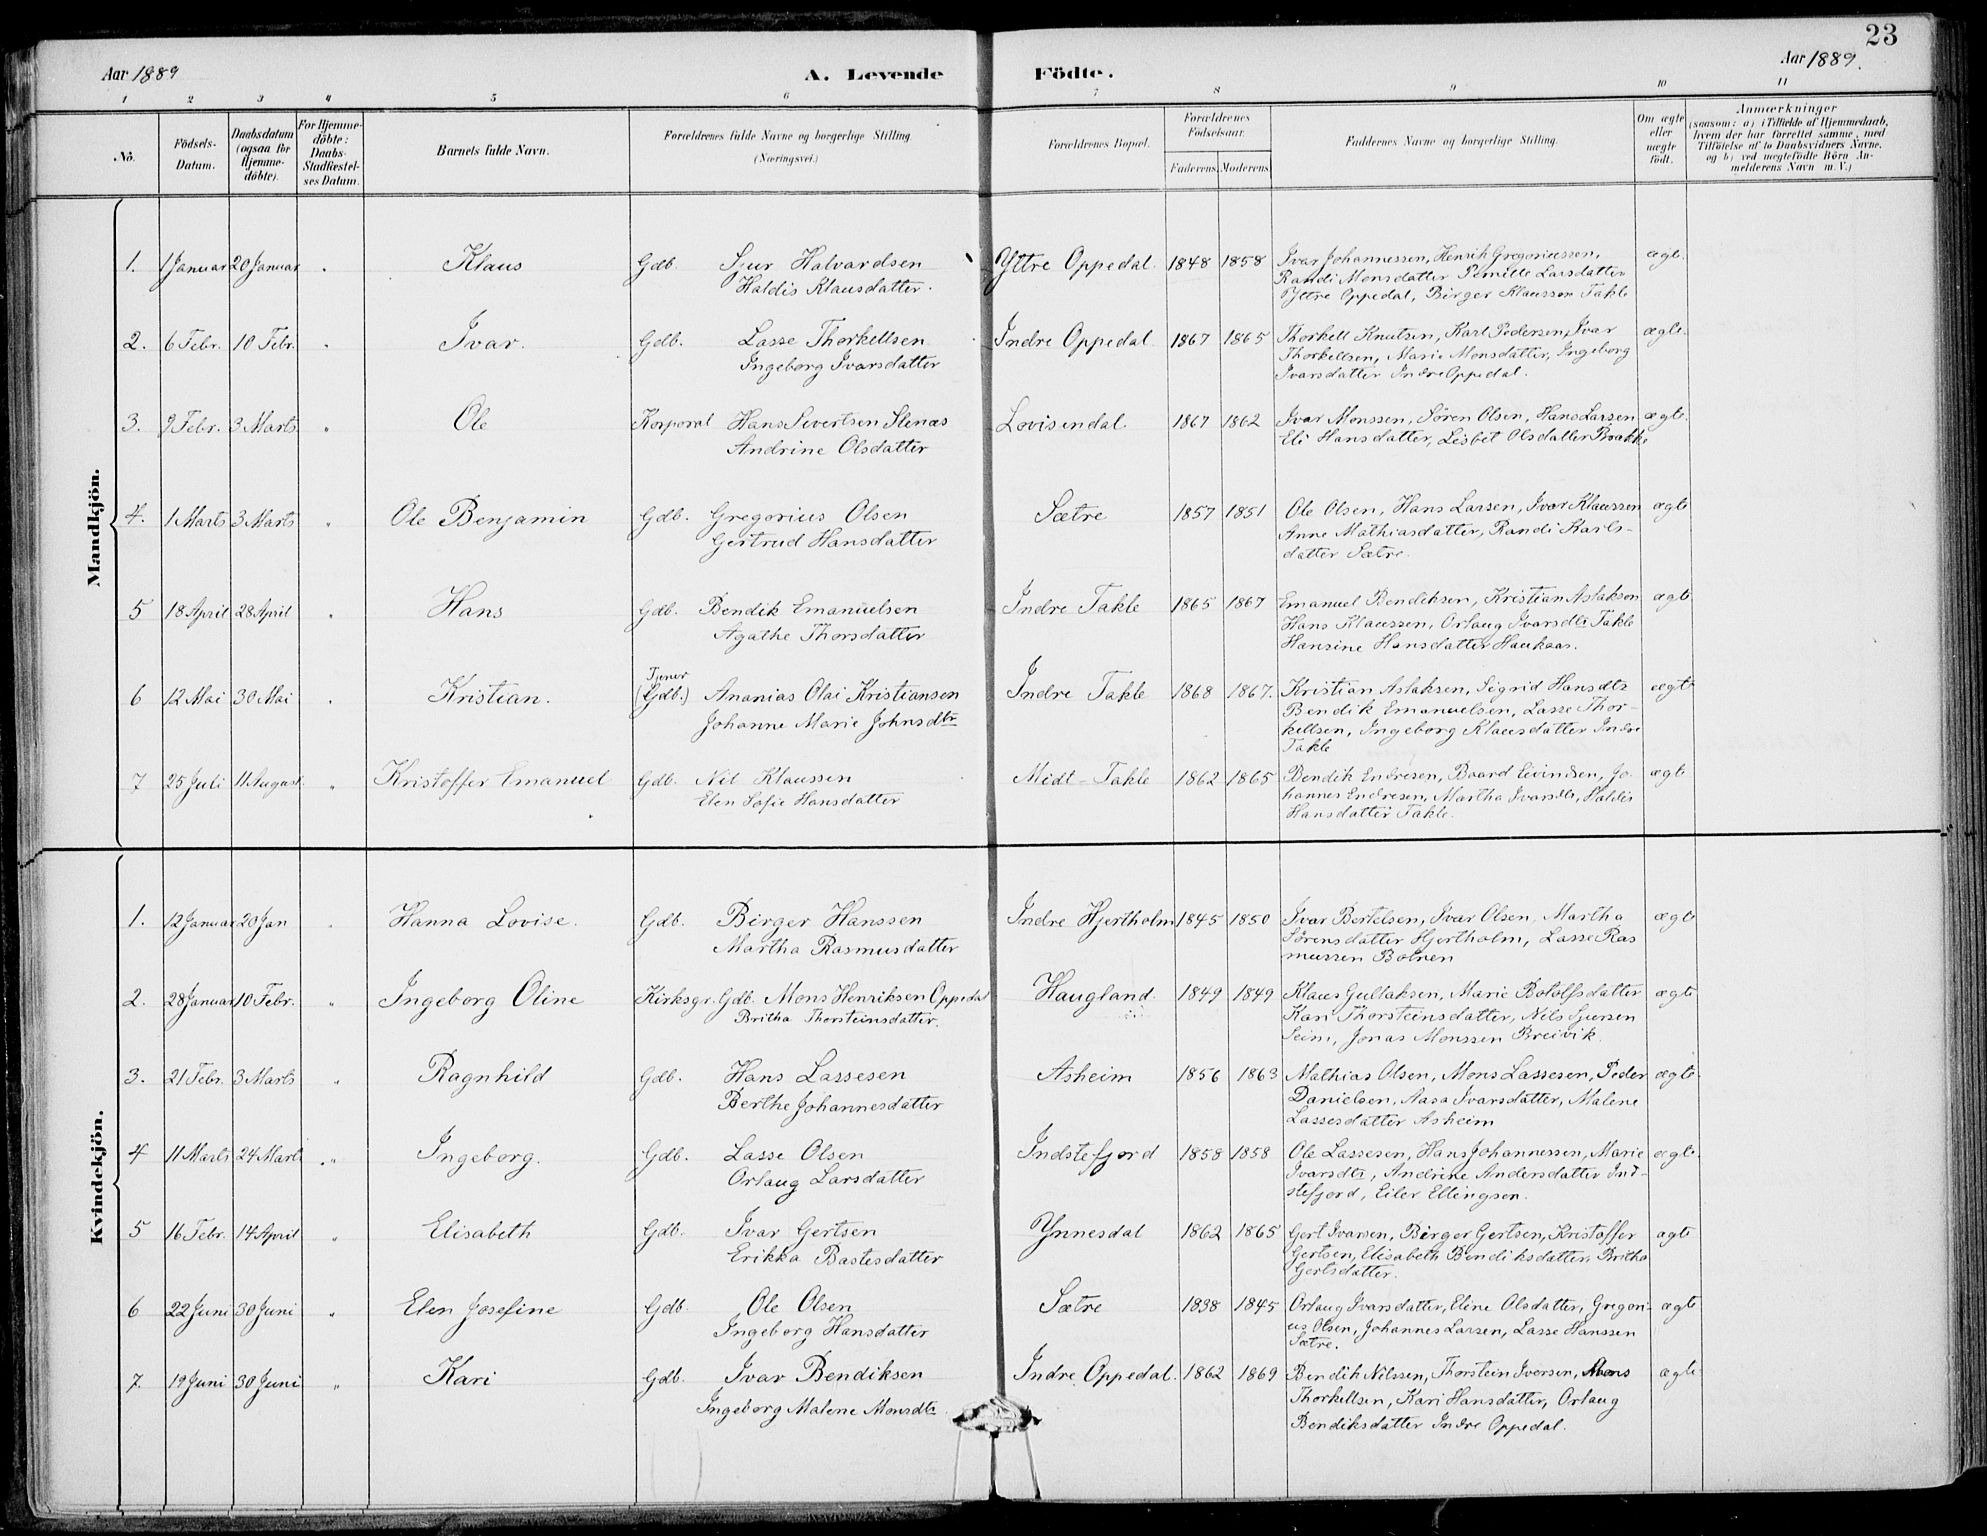 23
Aar 1889 A. Levende Födte. Aar 1889.
1 2 3 4 5 6 7 8 9 10 11
No. Födsels-Datum. Daabsdatum (ogsaa for Hjemme-döbte). For Hjemme-döbte: Daabs-Stadfæstel-ses Datum. Barnets fulde Navn. Forældrenes fulde Navne og borgerlige Stilling. (Næringsvei.) Forældrenes Bopæl. Forældrenes Födselsaar. Faderens. Moderens. Faddernes Navne og borgerlige Stilling. Om ægte eller uægte födt. Anmærkninger (saasom: a) i Tilfælde af Hjemmedaab, hvem der har forrettet samme, med Tilföielse af to Daabsvidners Navne, og b) ved uægtefödte Börn An-melderens Navn m.V.)
Mandkjön.
1. 1 Januar 20 Januar " Klaus Gdb. Sjur Halvardsen Yttre Oppedal. 1848 1858 Ivar Johannessen, Henrik Gregoriussen, ægte.
Haldis Klausdatter. Randi Monsdatter Pernille Larsdatter
Yttre Oppedal, Birger Klaussen Takle
2. 6 Febr. 10 Febr. " Ivar. Gdb. Lasse Thorkellsen Indre Oppedal 1867 1865 Thorkell Knutsen, Karl Pedersen, Ivar ægte.
Ingeborg Ivarsdatter Thorkellsen, Marie Monsdatter, Ingeborg
Ivarsdatter Indre Oppedal.
3. 9 Febr. 3 Marts " Ole Korporal Hans Sivertsen Stenæs Lovisendal 1867 1862 Ivar Monssen, Søren Olsen, Hans Larsen ægte.
Andrine Olsdatter Eli Hansdatter, Lisbet Olsdatter Brække
4. 1 Marts 3 Marts " Ole Benjamin Gdb. Gregorius Olsen Sætre 1857 1851 Ole Olsen, Hans Larsen, Ivar Klaussen ægte
Gertrud Hansdatter Anne Mathiasdatter, Randi Karls-
datter Sætre.
5 18 April 28 April " Hans Gdb. Bendik Emanuelsen Indre Takle 1865 1867 Emanuel Bendiksen, Kristian Aslaksen ægte
Agathe Thorsdatter Hans Klaussen, Orlaug Ivarsdtr Takle
Hansine Hansdatter Haukaas.
Tjener
6 12 Mai 30 Mai " Kristian. (Gdb.) Ananias Olai Kristiansen Indre Takle 1868 1867. Kristian Aslaksen, Sigrid Hansdtr ægte
Johanne Marie Johnsdtr Bendik Emanuelsen, Lasse Thor-
kellsen, Ingeborg Klausdatter Indre
Takle
7 25 Juli 11 August " Kristoffer Emanuel Gdb. Nil Klaussen Midt-Takle 1862 1865 Bendik Endresen, Baard Eivindsen, Jo- ægte
Elen Sofie Hansdatter hannes Endresen, Martha Ivarsdtr, Haldis
Hansdatter Takle.
Kvindekjön.
1. 12 Januar 20 Jan " Hanna Lovise. Gdb. Birger Hanssen Indre Hjertholm 1845 1850 Ivar Bertelsen, Ivar Olsen, Martha ægte
Martha Rasmusdatter Sørensdatter Hjertholm, Lasse Ras
mussen Botnen
2. 28 Januar 10 Febr. " Ingeborg Oline Kirksgr. Gdb. Mons Henriksen Oppedal Haugland. 1849 1849 Klaus Gullaksen, Marie Botolfsdatter ægte
Britha Thorsteinsdatter. Kari Thorsteinsdatter, Nils Sjursen
Seim, Jonas Monssen Breivik.
3. 21 Febr. 3 Marts " Ragnhild Gdb. Hans Lassesen Asheim 1856 1863 Mathias Olsen, Mons Lassesen, Peder ægte.
Berthe Johannesdatter Danielsen, Aasa Ivarsdatter, Malene
Lassesdatter Asheim
4 11 Marts 24 Marts " Ingeborg. Gdb. Lasse Olsen Indstefjord 1858 1858 Ole Lassesen, Hans Johannessen, Marie ægte
Orlaug Larsdatter Ivarsdtr, Andrine Andersdatter Ind-
stefjord, Eiler Ellingsen.
5 16 Febr. 14 April " Elisabeth Gdb. Ivar Gertsen Ynnesdal 1862 1865 Gert Ivarsen, Birger Gertsen, Kristoffer ægte
Erikka Bastesdatter Gertsen, Elisabeth Bendiksdatter, Britha
Gertsdatter.
6 22 Juni 30 Juni " Elen Josefine Gdb. Ole Olsen Sætre 1838 1845 Orlaug Ivarsdatter, Eline Olsdatter, Gregori- ægte
Ingeborg Hansdatter us Olsen, Johannes Larsen, Lasse Hanssen
Sætre.
7. 19 Juni 30 Juni " Kari Gdb. Ivar Bendiksen Indre Oppedal. 1862 1869 Bendik Nilssen, Thorstein Iversen, Mons ægte
Ingeborg Malene Monsdtr. Thorkellsen, Kari Hansdatter, Orlaug
Bendiksdatter Indre Oppedal.